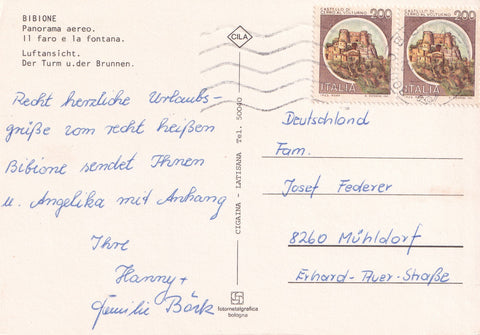 BIBIONE
Panorama aereo.
Il faro e la fontana.
Luftansicht.
Der Turm u.der Brunnen.
Recht herzliche Urlaubs-
grüße vom recht heißen
Bibione sendet Ihnen
u. Angelika mit Anhang
Ihre
Hanny +
Familie Böck
CILA
CIGAINA - LATISANA Tel. 50040
fotometalgrafica
bologna
200
CASTELLO DI
CERRO AL VOLTURNO
ITALIA
200
CASTELLO DI
CERRO AL VOLTURNO
ITALIA
Deutschland
Fam.
Josef Federer
8260 Mühldorf
Erhard-Auer-Straße